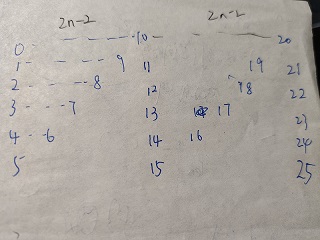 2n-2 2n-2
0 - - - - - - - 10 - - - - - - - 20
1 - - - - - 9 11 19 21
2 - - - - 8 12 18 22
3 - - - 7 13 17 23
4 - - 6 14 16 24
5 15 25